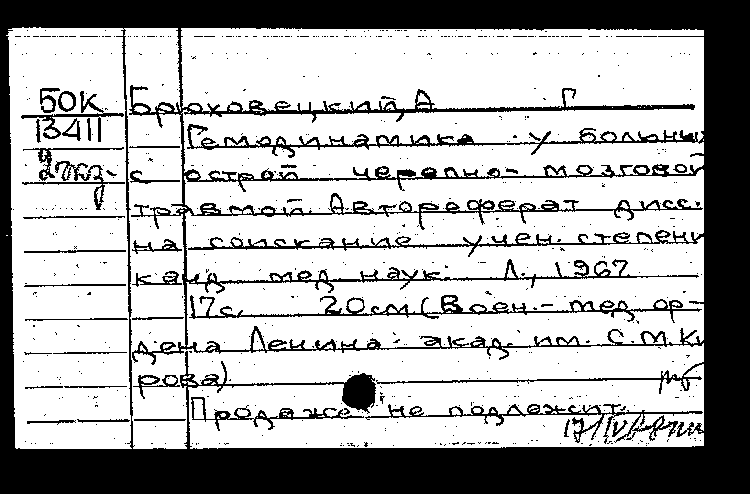 БОК Брюховецкий, А Г
13411 Гемодинамика у больных
2 экз. с острой черепно-мозговой
травмой. Автореферат дисс.
на соискание учен. степени
канд. мед. наук. Л., 1967
17с. 20см (Воен.-мед. ор-
дена Ленина акад. им. С.М.Ки
рова)
Продаже не подлежит.